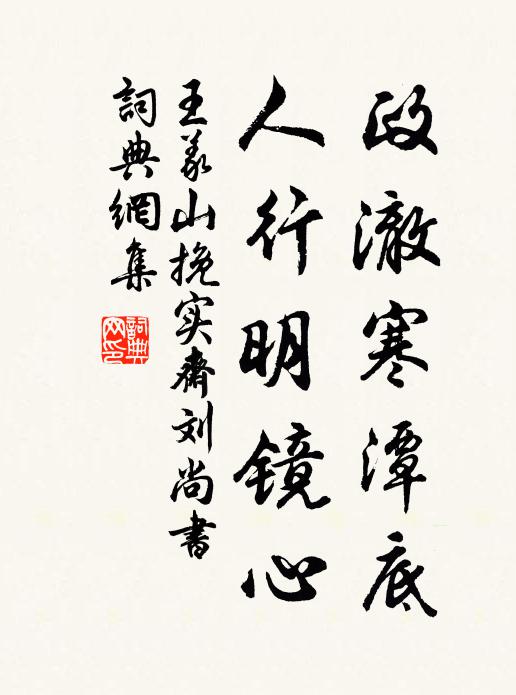 政澈寒潭底
人行明镜心
王义山挽实斋刘尚书
詞典網集
詞典网印